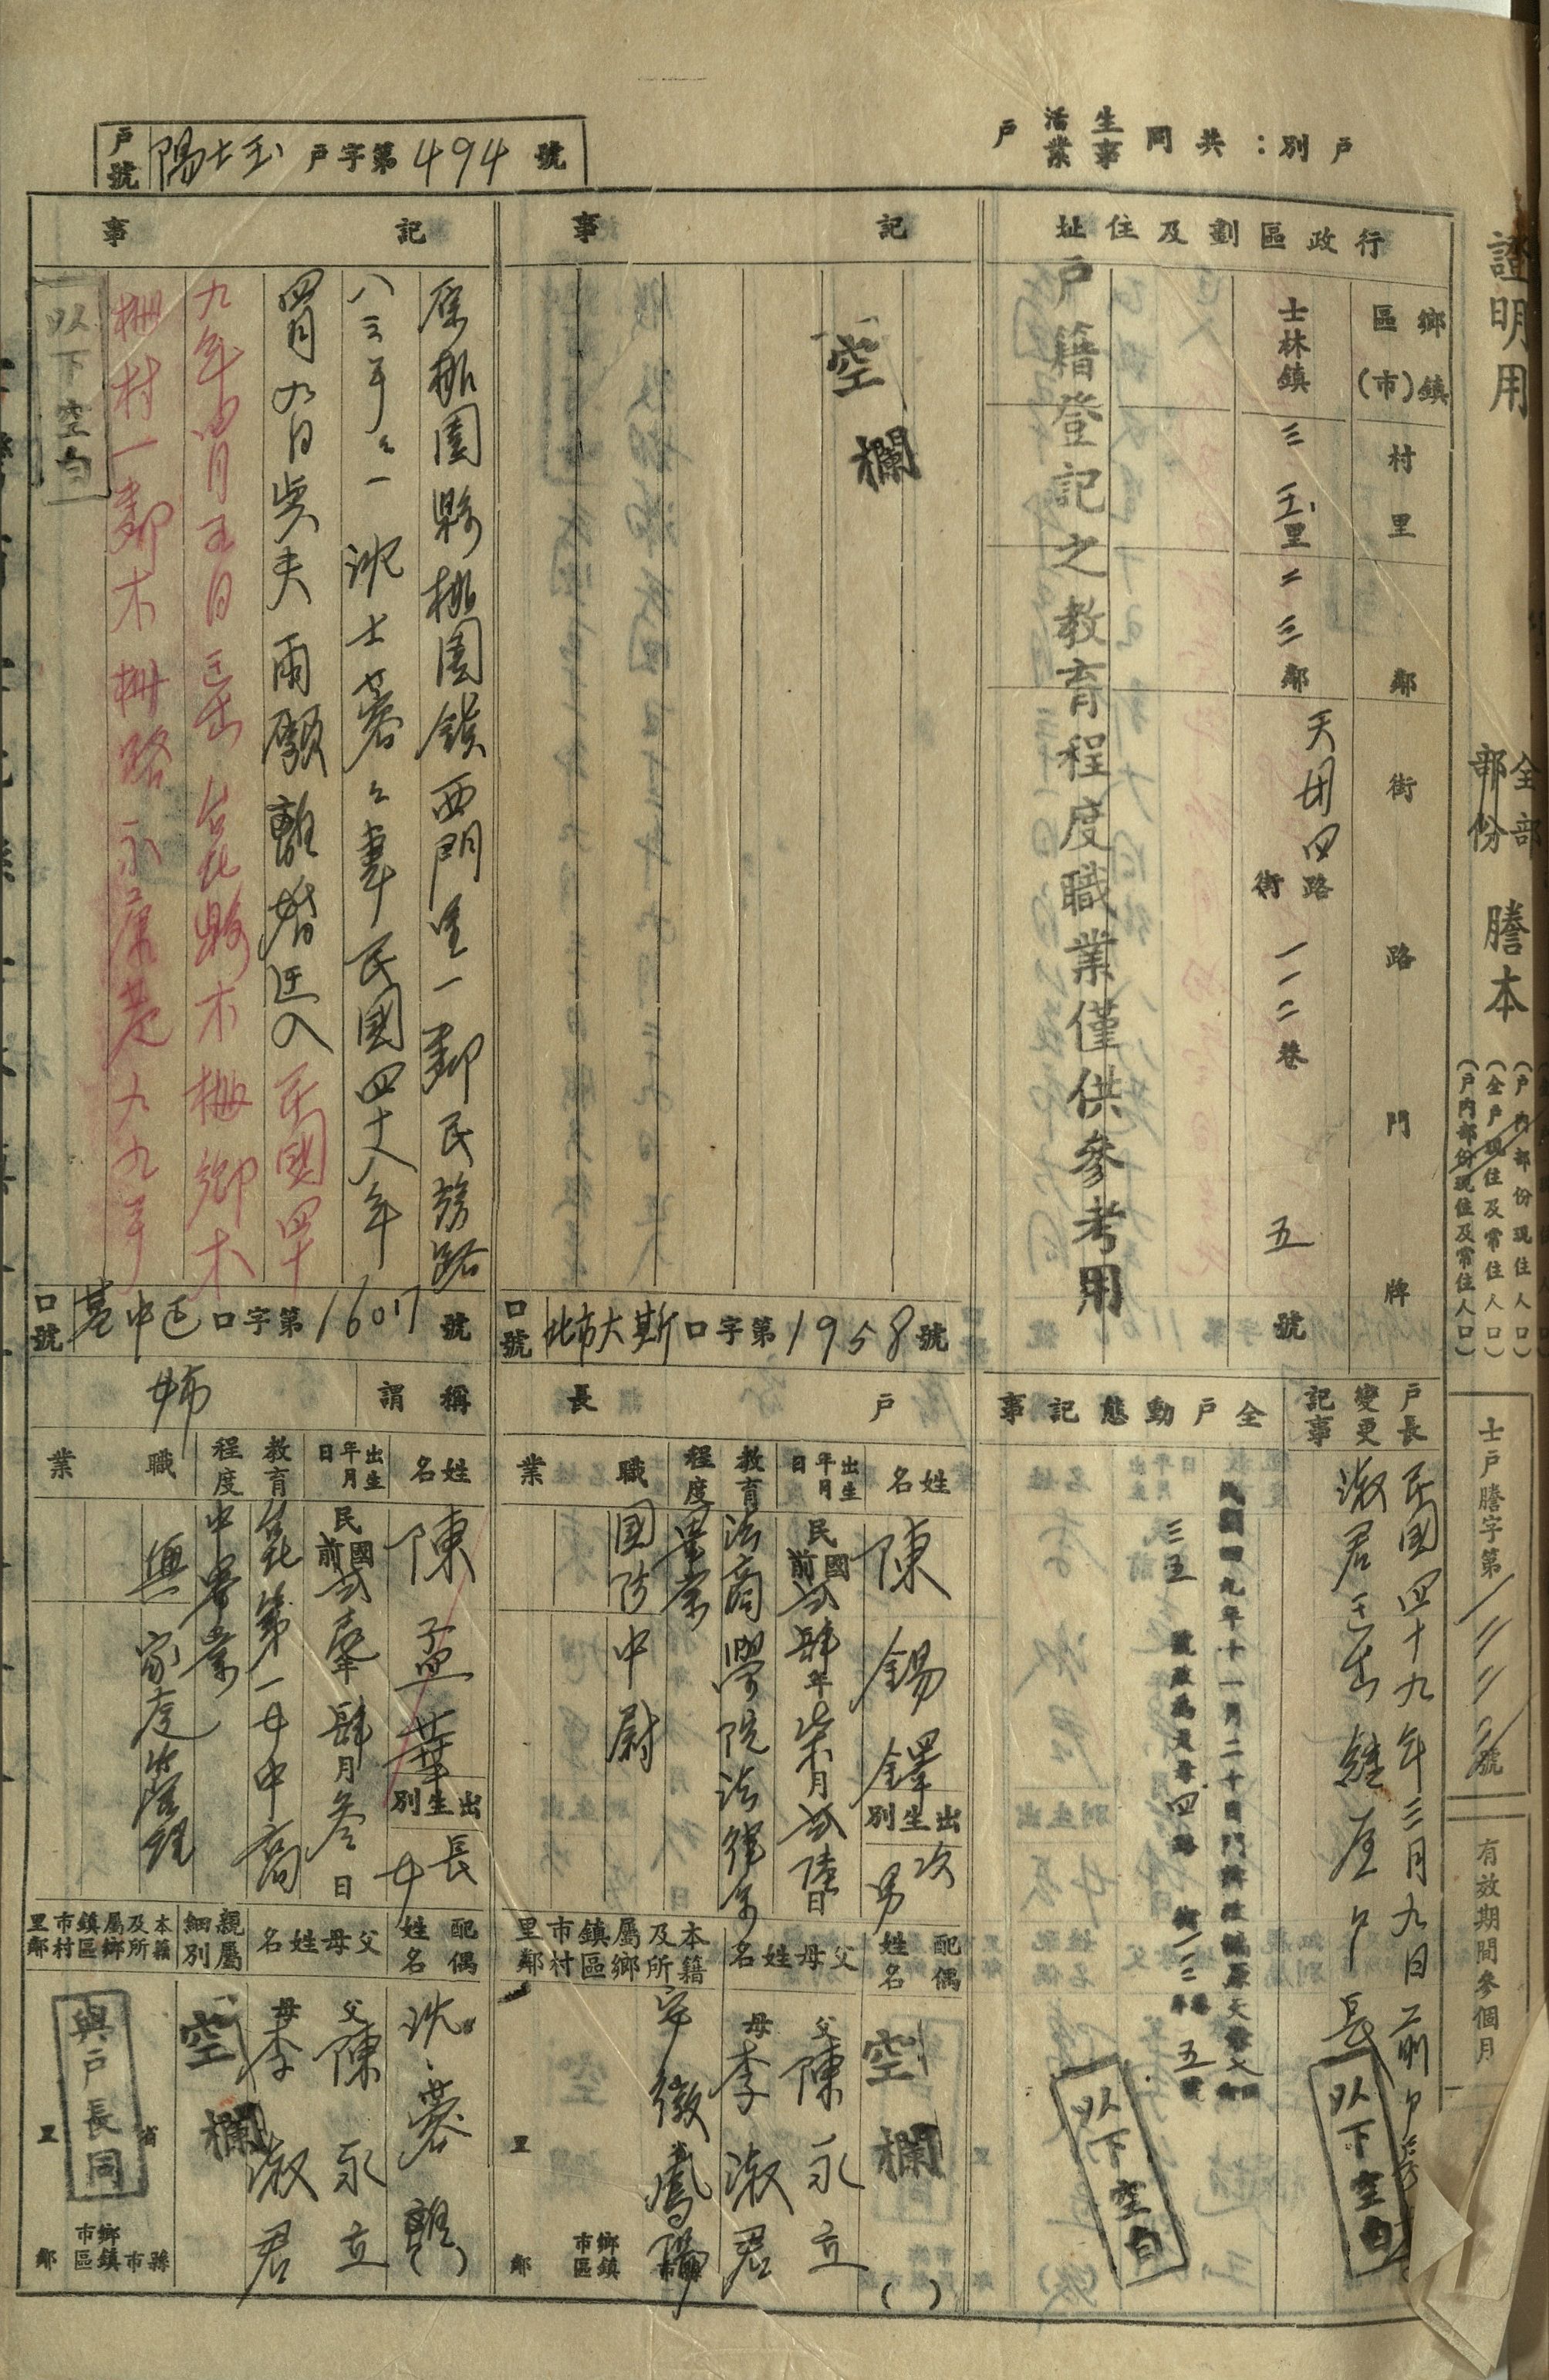 證明用
全部
部份
謄本
(戶內部份現住人口)
(全戶現住及常住人口)
(戶內部份現住及常住人口)
士戶謄字第
號
有效期間參個月
戶別：共同
生活
事業
戶
戶號 陽士玉 戶字第494號
行政區劃及住址
鄉鎮
區(市)
村里
鄰
街路
門牌
士林鎮
三玉里
二三鄰
天母四路
街
一一二巷
五號
戶籍登記之教育程度職業僅供參考用
戶長變更記事
民國四十九年三月九日前戶長
淑君遷出繼為戶長
以下空白
全戶動態記事
民國四九年十一月二十日門牌
三玉
號改為天母四路
街一一二巷
五號
以下空白
記事
空欄
口號 北市大斯 口字第1958號
戶長
姓名
陳錫鐸
出生別
次男
出生年月日
民國前貳肆年柒月貳陸日
教育程度
法商學院法律系
畢業
職業
國防
中尉
配偶姓名
空欄
( )
父母姓名
父 陳永立
母 李淑君
本籍及所屬鄉鎮區市村里鄰
安徽鳳陽
鄉鎮
市區
里
鄰
記事
原桃園縣桃園鎮西門里一鄰民族路
八三號之一沈士蓉之妻民國四十八年
四月九日與夫兩願離婚遷入民國四十
九年四月五日遷出台北縣木柵鄉木
柵村一鄰木柵路永康巷九九號
以下空白
口號 基中正 口字第16017號
稱謂
姊
姓名
陳孟華
出生別
長女
出生年月日
民國前貳壹年肆月叁日
教育程度
台北第一女中高
中畢業
職業
無
家庭管理
配偶姓名
沈蓉(離)
父母姓名
父 陳永立
母 李淑君
親屬細別
空欄
本籍及所屬鄉鎮區市村里鄰
與戶長同
省
縣市
鄉鎮
市區
里
鄰